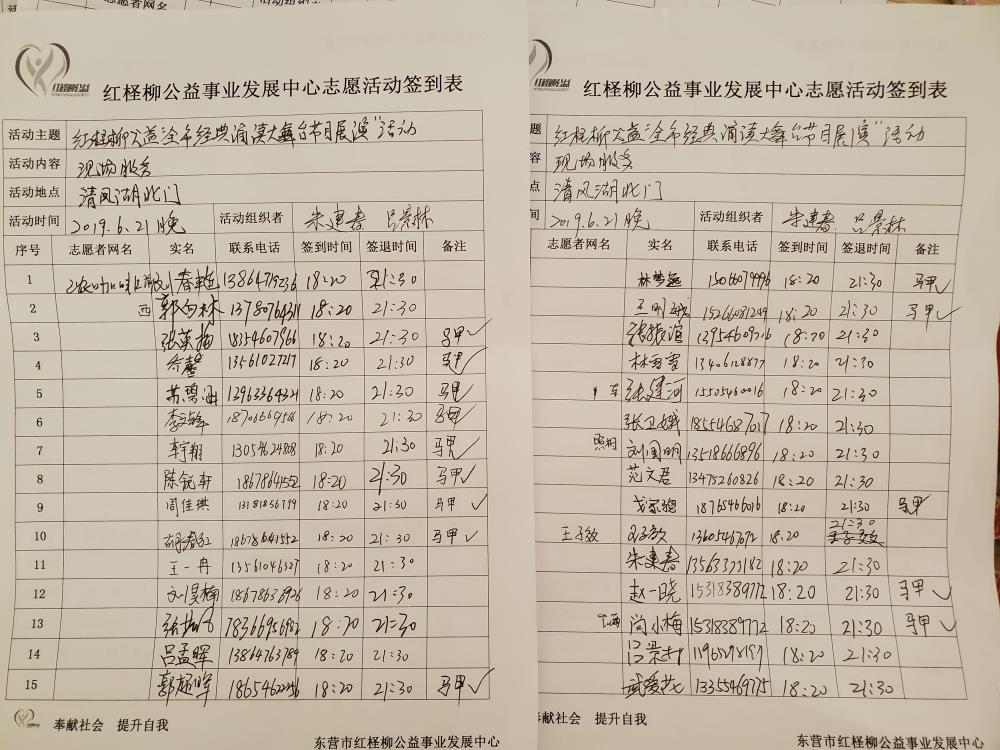 红柽柳公益事业发展中心志愿活动签到表
活动主题 红柽柳公益"全市经典诵读大舞台节目展演"活动
活动内容 现场服务
活动地点 清风湖北门
活动时间 2019.6.21晚 活动组织者 朱建春 吕景林
序号 志愿者网名 实名 联系电话 签到时间 签退时间 备注
1 18:20 21:30
2 18:20 21:30
3 张英梅 18354607966 18:20 21:30 马甲✓
4 13561027217 18:20 21:30 马甲✓
5 苏碧涵 18:20 21:30 马甲✓
6 18:20 21:30 马甲✓
7 李宇翔 13054624808 18:20 21:30 马甲✓
8 陈锐轩 18678641552 18:20 21:30 马甲✓
9 周佳琪 13181856799 18:20 21:30 马甲✓
10 胡春红 18678641552 18:20 21:30 马甲✓
11 王一冉 13561046327 18:20 21:30
12 18678636926 18:20 21:30
13 18:20 21:30
14 吕孟晖 13864763789 18:20 21:30
15 郭超晖 18:20 21:30 马甲✓
奉献社会 提升自我
东营市红柽柳公益事业发展中心
红柽柳公益事业发展中心志愿活动签到表
题 红柽柳公益"全市经典诵读大舞台节目展演"活动
容 现场服务
点 清风湖北门
间 2019.6.21晚 活动组织者 朱建春 吕景林
志愿者网名 实名 联系电话 签到时间 签退时间 备注
15066079996 18:20 21:30 马甲✓
王明娥 15266081249 18:20 21:30 马甲✓
13954609716 18:20 21:30
林雪雪 13406128877 18:20 21:30
张建河 15505460016 18:20 21:30
张卫娥 18554687017 18:20 21:30
照相 刘国明 13518666896 18:20 21:30
范文君 13475260826 18:20 21:30
18765466016 18:20 21:30 马甲✓
王子效 王子效 13605467672 18:20 21:30
朱建春 13563321182 18:20 21:30
赵一晓 15318389772 18:20 21:30 马甲✓
尚小梅 15318389772 18:20 21:30 马甲✓
吕景林 18:20 21:30
武爱芹 13355469775 18:20 21:30
奉献社会 提升自我
东营市红柽柳公益事业发展中心